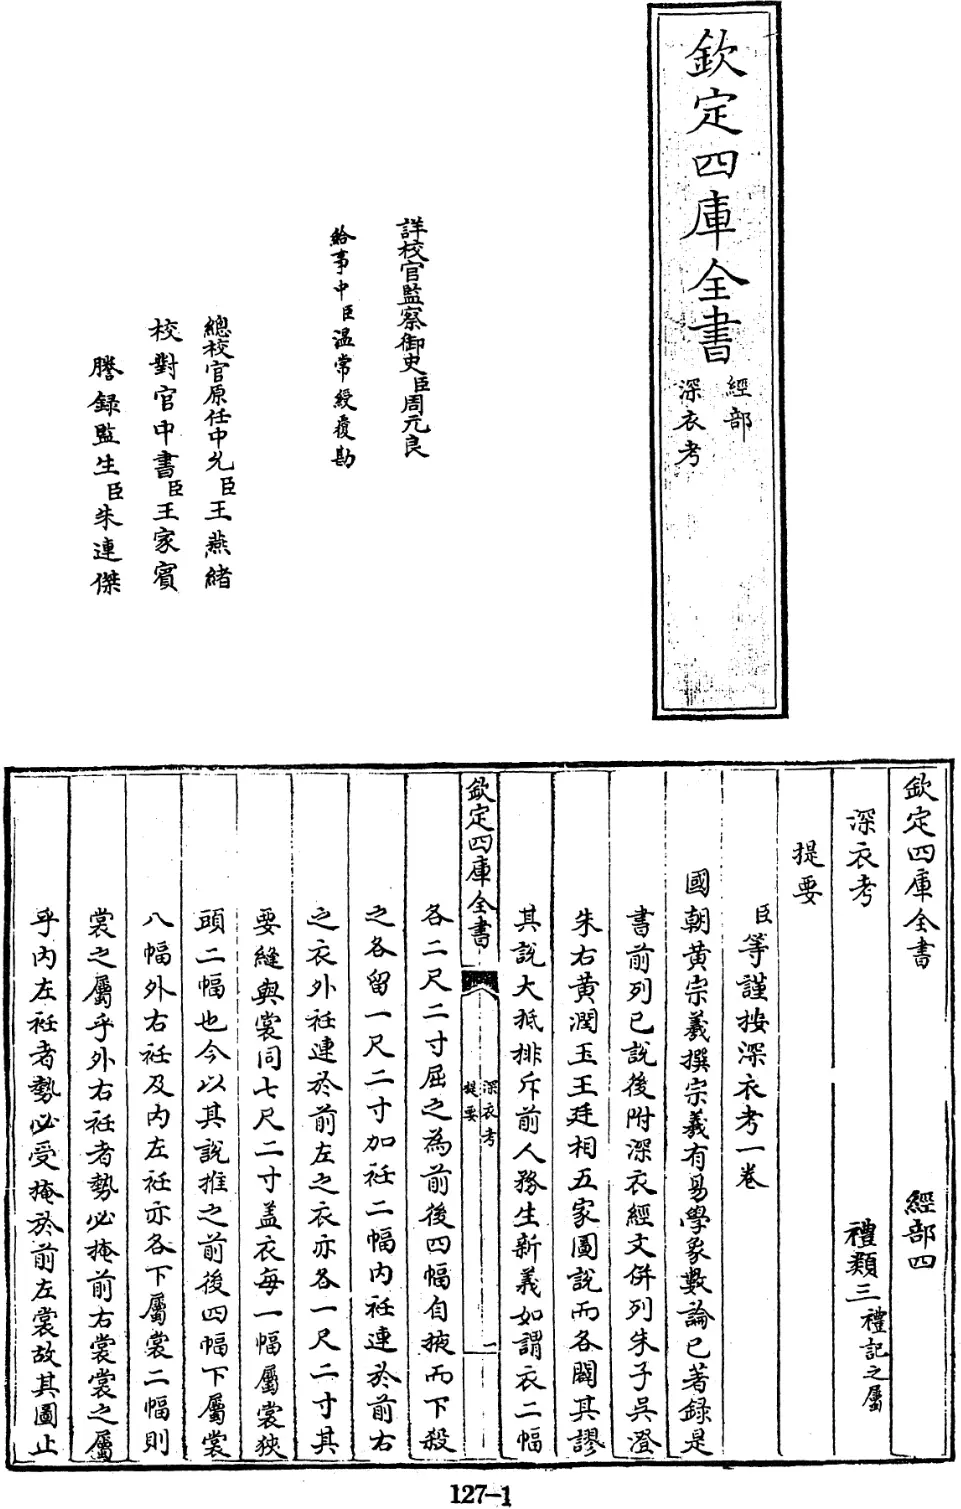 欽定四庫全書
經部
深衣考
詳校官監察御史臣周元良
給事中臣溫常綬覆勘
總校官原任中允臣王燕緒
校對官中書臣王家賓
謄録監生臣朱連傑
欽定四庫全書 經部四
深衣考 禮類三禮記之屬
提要
臣等謹按深衣考一卷
國朝黄宗羲撰宗羲有易學象數論已著録是
書前列己說後附深衣經文併列朱子吳澄
朱右黄潤玉王廷相五家圖說而各闢其謬
其說大抵排斥前人務生新義如謂衣二幅
欽定四庫全書
深衣考
提要
一
各二尺二寸屈之為前後四幅自掖而下殺
之各留一尺二寸加衽二幅内衽連於前右
之衣外衽連於前左之衣亦各一尺二寸其
要縫與裳同七尺二寸盖衣每一幅屬裳狹
頭二幅也今以其說推之前後四幅下屬裳
八幅外右衽及内左衽亦各下屬裳二幅則
裳之屬乎外右衽者勢必掩前右裳裳之屬
乎内左衽者勢必受掩於前左裳故其圖止
127-1